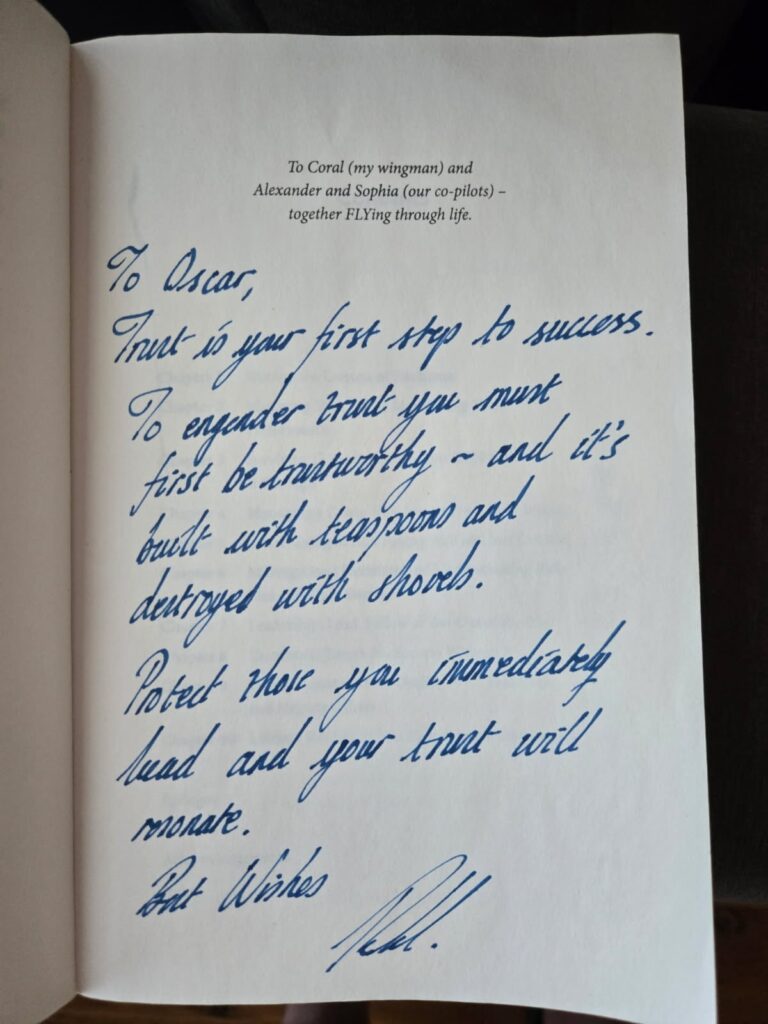 To Coral (my wingman) and
Alexander and Sophia (our co-pilots) –
together FLYing through life.
To Oscar,
Trust is your first step to success.
To engender trust you must
first be trustworthy ~ and it's
built with teaspoons and
destroyed with shovels.
Protect those you immediately
lead and your trust will
resonate.
Best Wishes